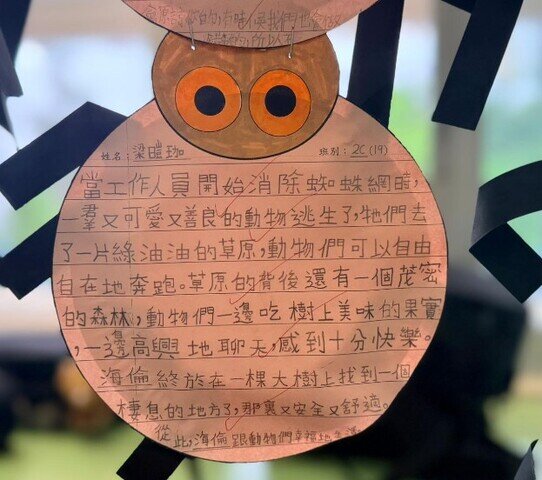 錯的,所以我
姓名:梁暟珈 班別:2C(19)
當工作人員開始消除蜘蛛網時,
一羣又可愛又善良的動物逃生了,牠們去
了一片綠油油的草原,動物們可以自由
自在地奔跑。草原的背後還有一個茂密
的森林,動物們一邊吃樹上美味的果實
,一邊高興地聊天,感到十分快樂。
海倫終於在一棵大樹上找到一個
棲息的地方了,那裏又安全又舒適。
從此,海倫跟動物們幸福地生活